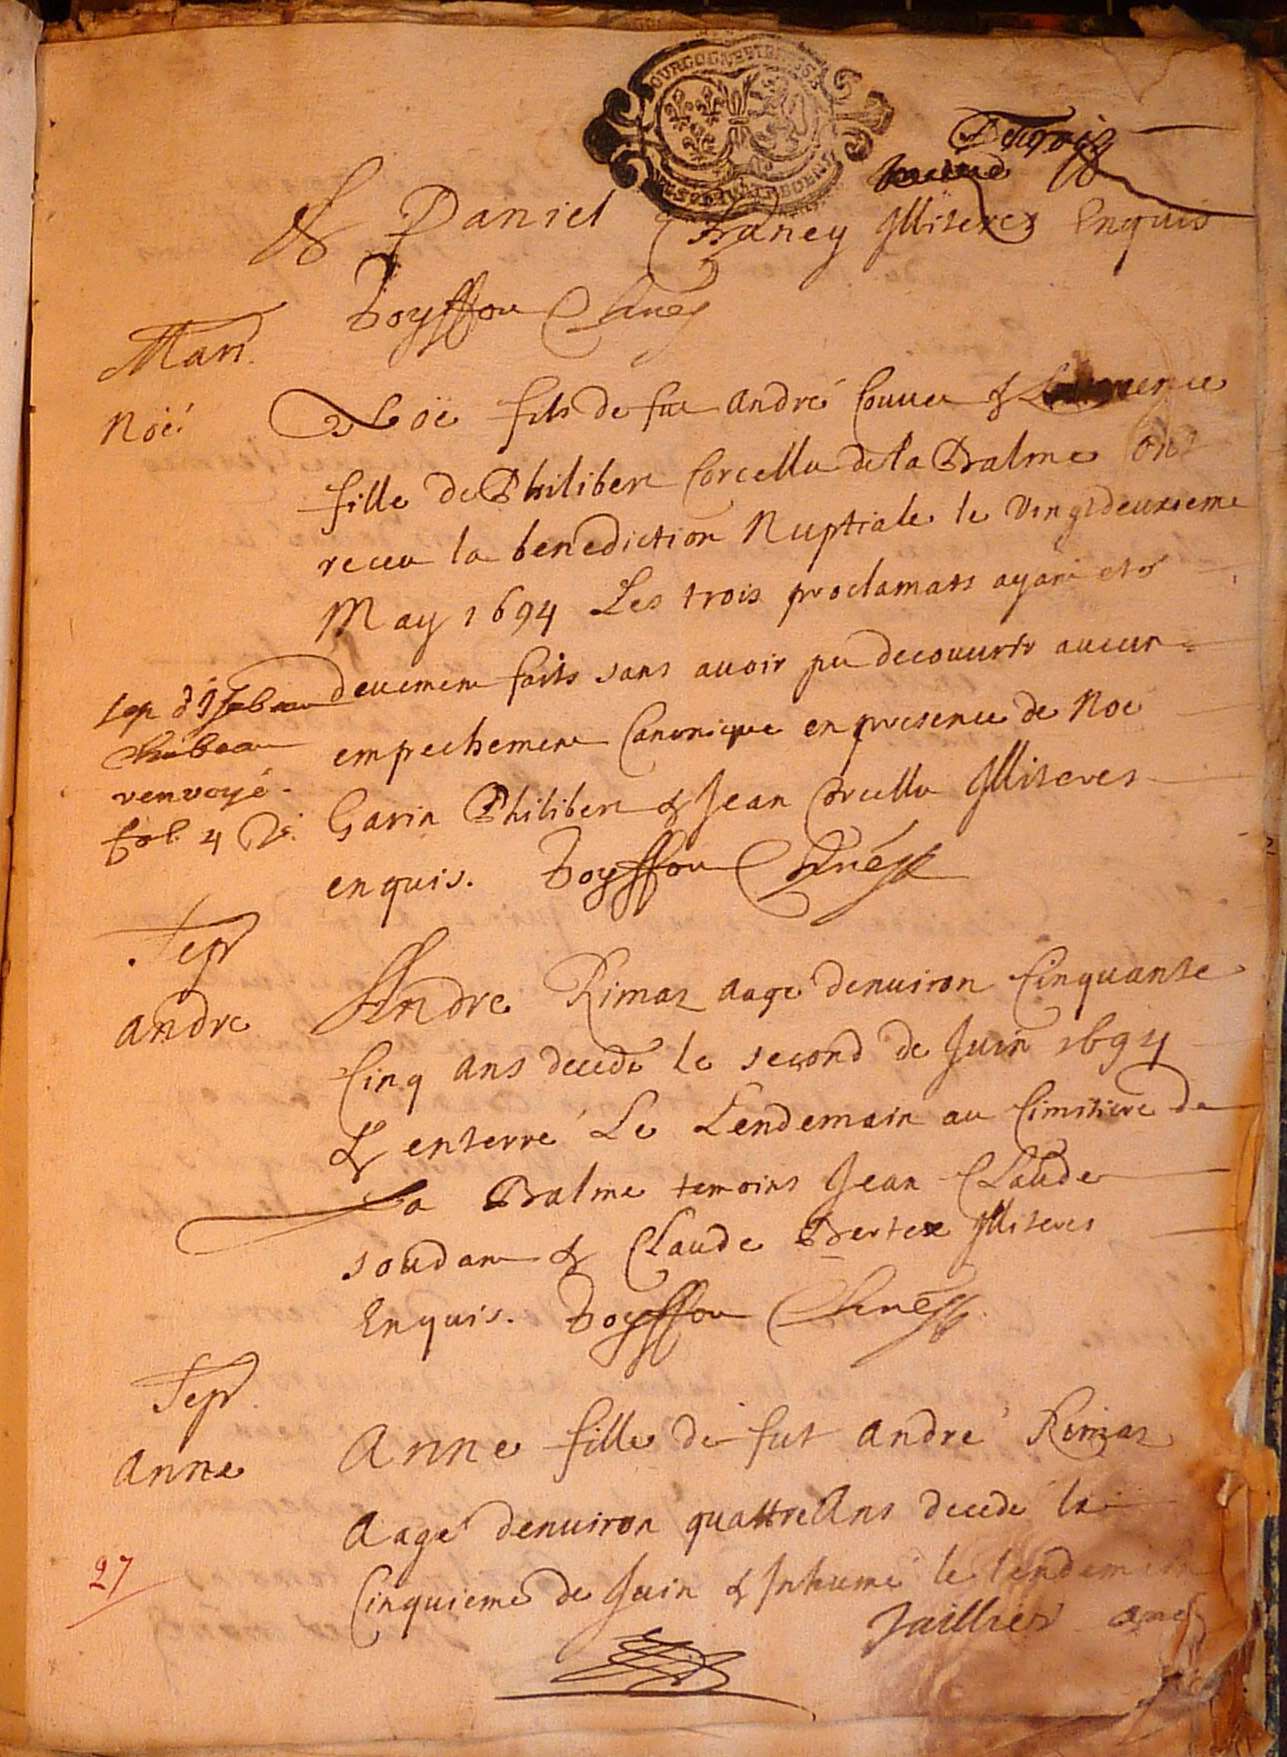 & Daniel Franey Illiteres Enquis
Boysson Curé
Mari
Noé
Noë fils de fue andré Couuer & Laurence
fille de Philibert Corcellu de la Balme ont
receu la benediction Nuptiale le vingtdeuxieme
May 1694 Les trois proclamats ayant etes
deuement faits sans auoir pu decouurir aucun
Sep d'Isabeau
empechement Canonique en presence de Noe
renvoyé.
Garin Philibert & Jean Corcellu Illiteres
fol. 4
enquis. Boysson Curé
Sepr
andre
Andre Rimaz aagé denuiron Cinquante
Cinq ans decede le second de Juin 1694
& enterré Le Lendemain au Cimitiere de
La Balme temoins Jean Claude
soudan & Claude Bertex Illiteres
Enquis. Boysson Curé
Sepr
anne
Anne fille de fut andré Rimaz
Aagé denuiron quattre Ans decede le
27
Cinquieme de Juin & Inhumé le lendemain
Juillier